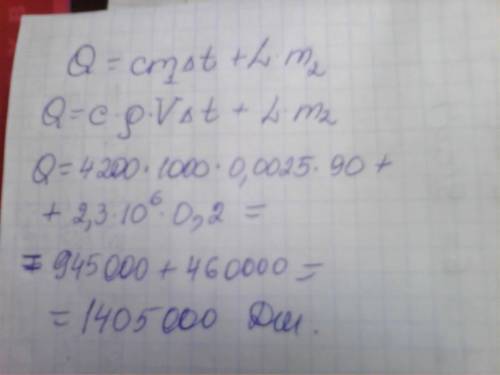 Q = cm₁Δt + L·m₂
Q = c·ρ·VΔt + L·m₂
Q = 4200·1000·0,0025·90 +
+ 2,3·10⁶·0,2 =
= 945000 + 460000 =
= 1405000 Дж.